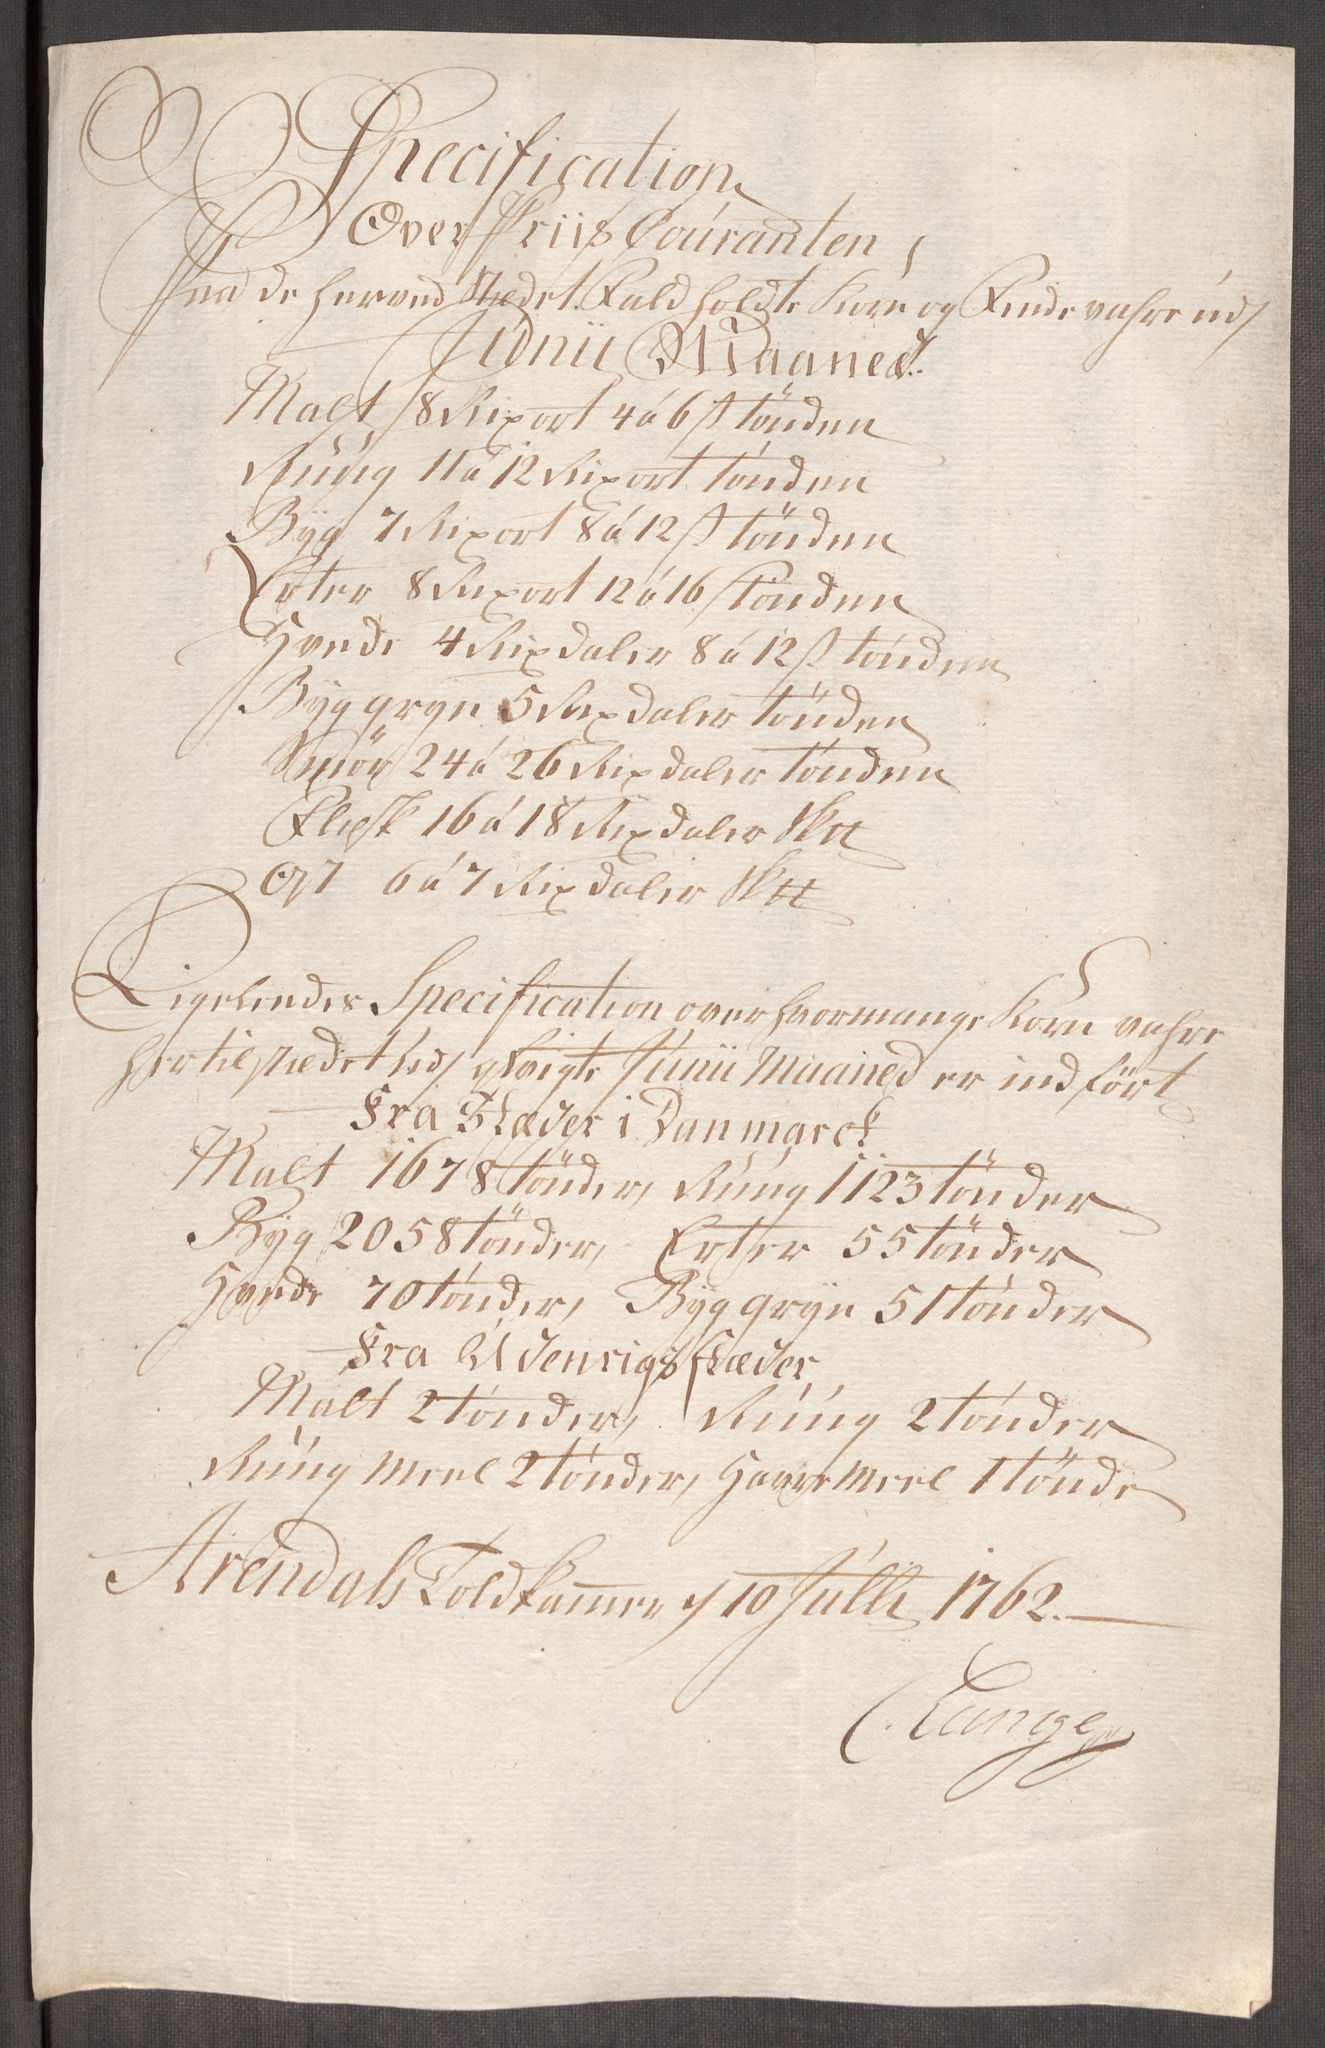 Specification
Over Priis Couranten,
Paa de herved Stædet Fald holdte Korn og Fede vahre udj
Junii Maaned.
Malt 8 Rixort 4 á 6 ß tönden
Rúúg 11 á 12 Rixort tönden
Byg 7 Rixort 8 á 12 ß tönden
Erter 8 Rixort 12 á 16 ß tönden
Hvede 4 Rixdaler 8 á 12 ß tönden
Byggryn 5 Rixdaler tönden
Smör 24 á 26 Rixdaler tönden
Flesk 16 á 18 Rixdaler
Ost 6 á 7 Rixdaler
Ligeledes Specification over hvormange Korn vahre
her til stædet udj Junii Maaned er ind fört
Fra Stæder i Danmarck
Malt 1678 tönder, Rúúg 1123 tönder
Byg 2058 tönder, Erter 55 tönder
Hvede 70 tönder, Byggryn 51 tönder
Fra Udenrigs stæder
Malt 2 tönder, Rúúg 2 tönder
Rúúg meel 2 tönder, Havremeel 1 tönde
Arendals Told Kammer d 10 Julli 1762.
C. Lange